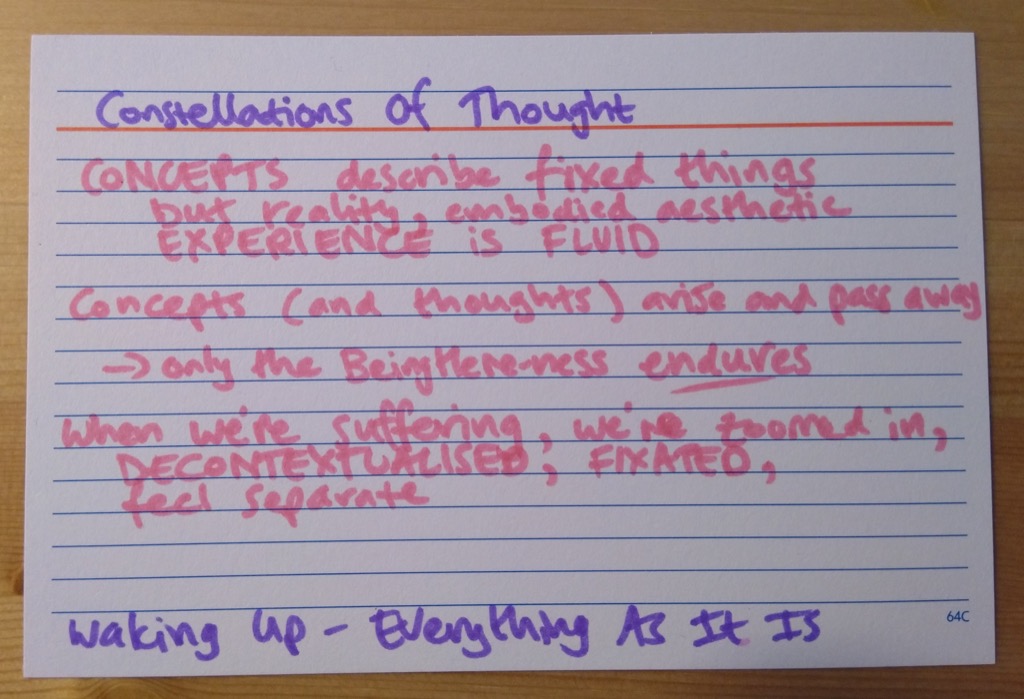 Constellations Of Thought
CONCEPTS describe fixed things
but reality, embodied aesthetic
EXPERIENCE is FLUID
Concepts (and thoughts) arise and pass away
→ only the BeingHere-ness endures
When we're suffering, we're zoomed in,
DECONTEXTUALISED, FIXATED,
feel separate
Waking Up - Everything As It Is
64C